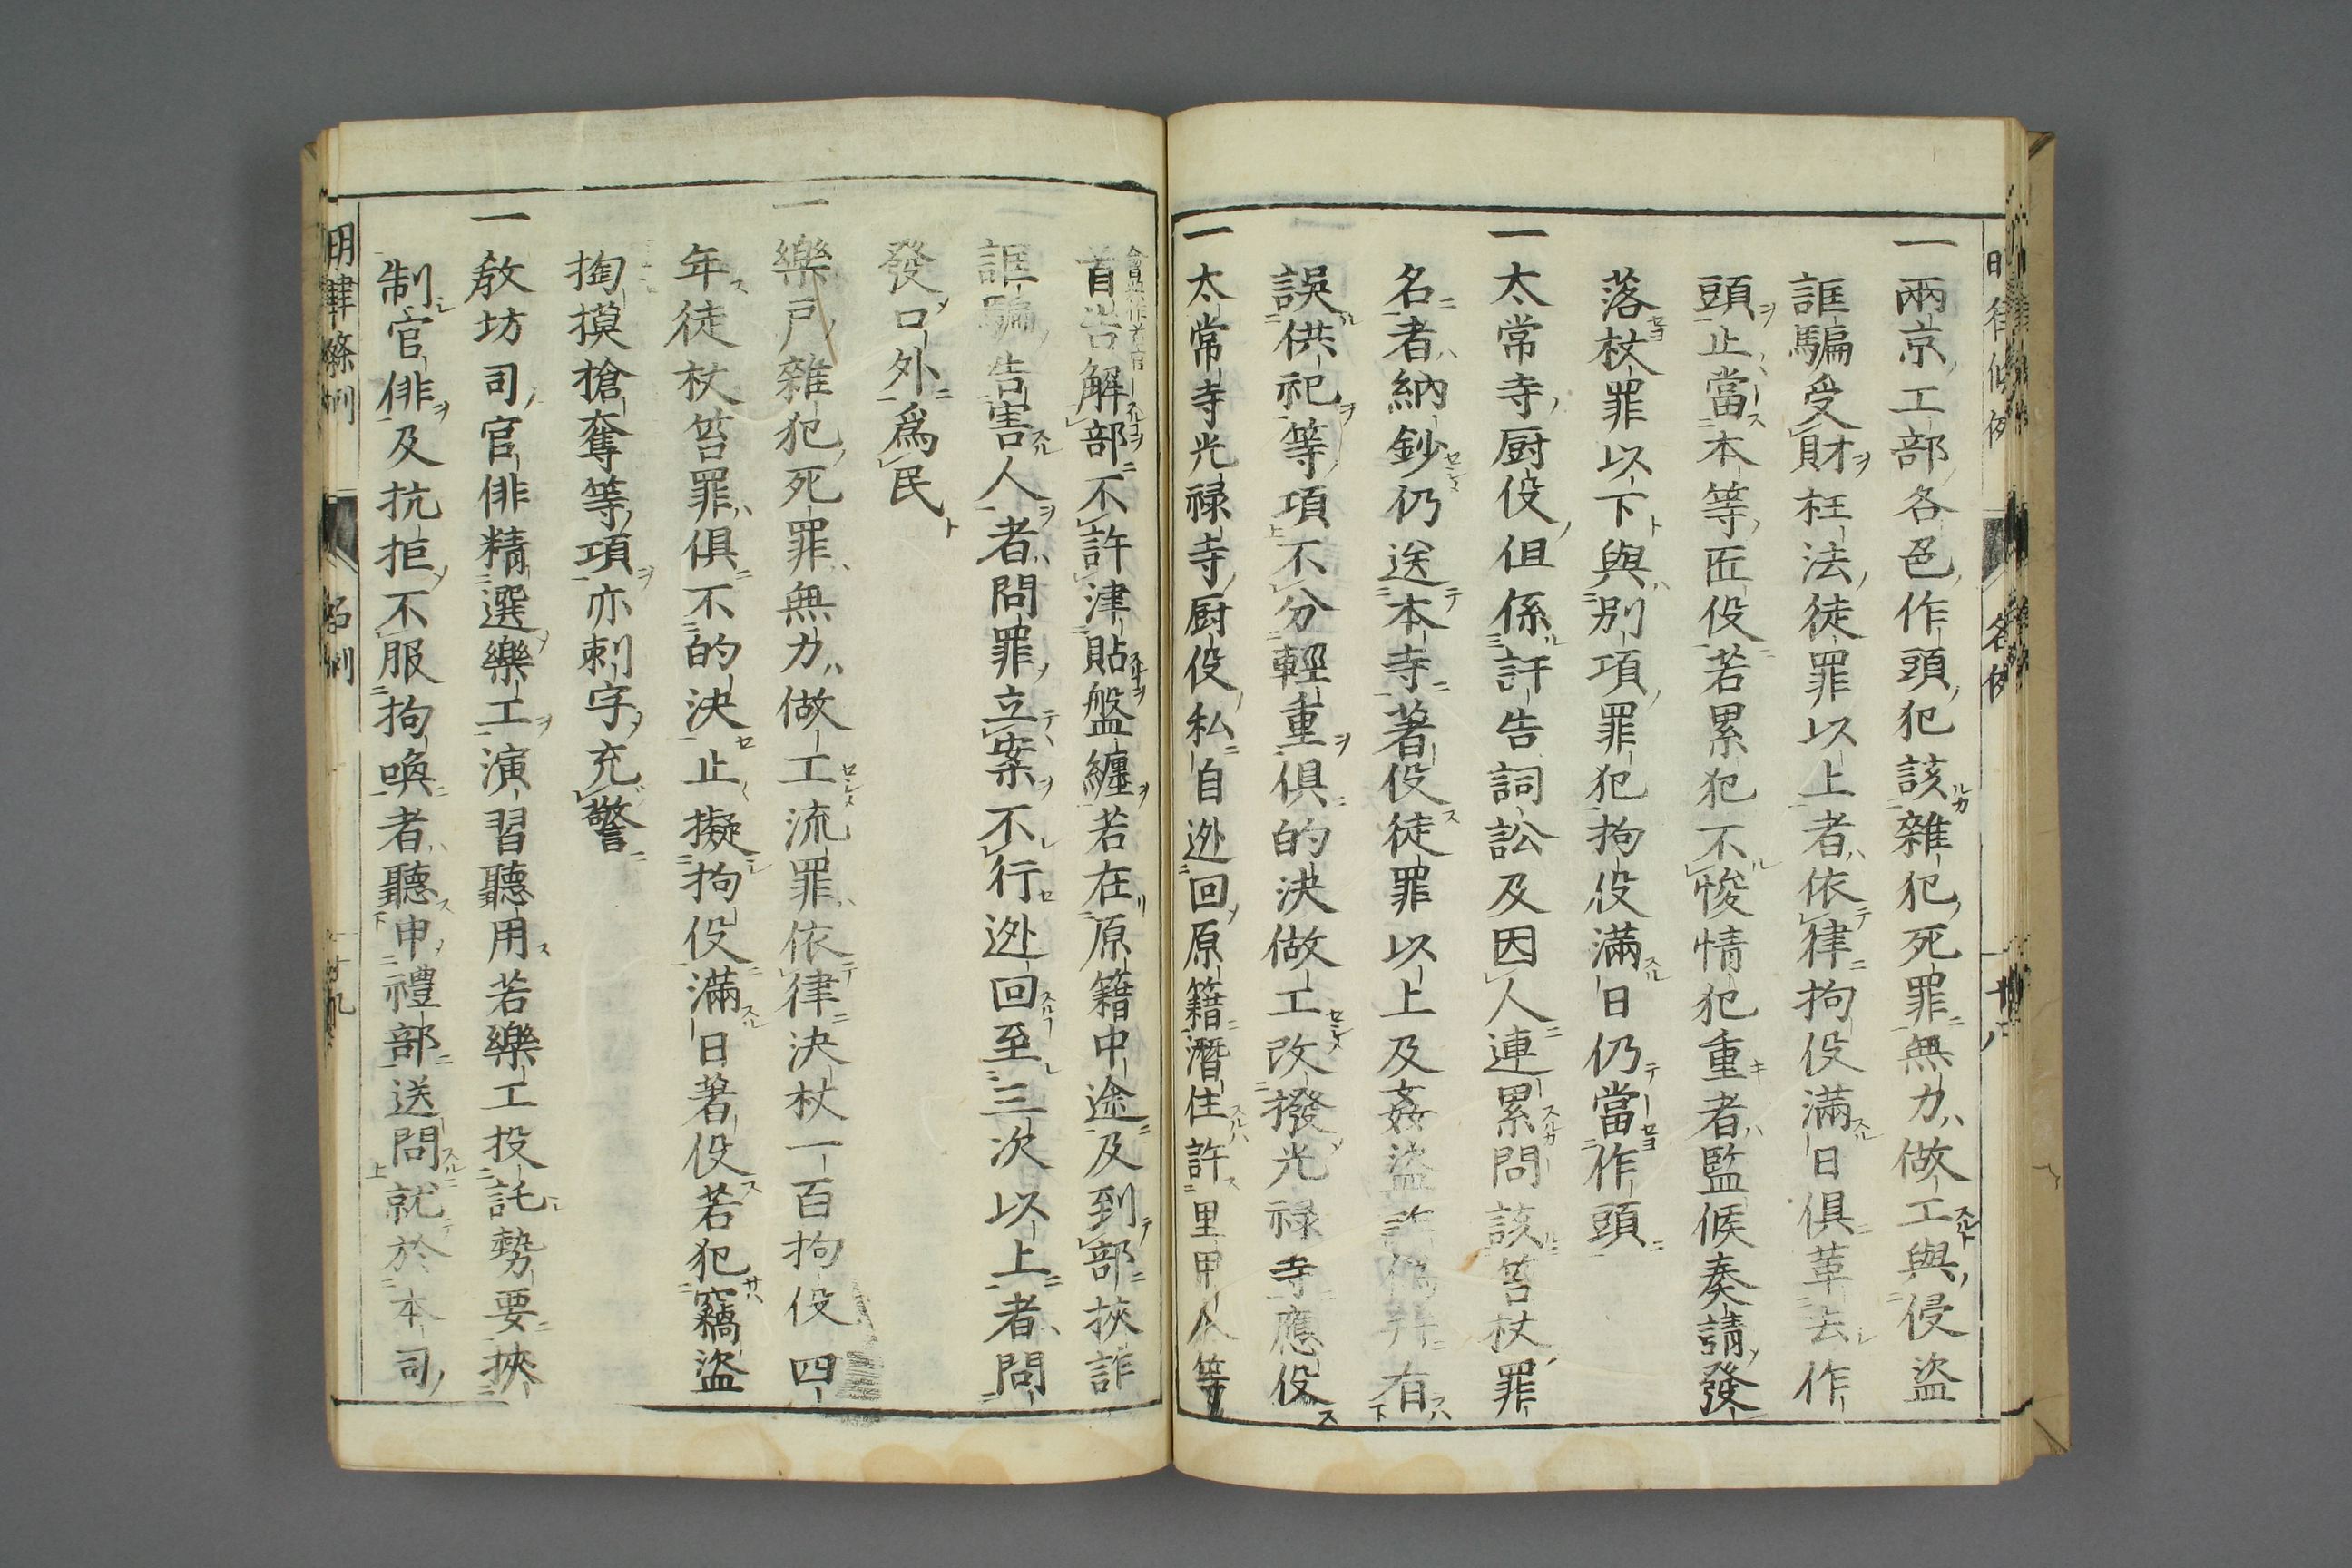 一兩京工部各色作頭犯該雜犯死罪無力做工與侵盜
誆騙受財枉法徒罪以上者依律拘役滿日俱革去作
頭止當本等匠役若累犯不悛情犯重者監候奏請發
落杖罪以下與別項罪犯拘役滿日仍當作頭
一太常寺厨役但係訐告詞訟及因人連累問該笞杖罪
名者納鈔仍送本寺著役徒罪以上及姦盜詐偽并有
誤供祀等項不分輕重俱的決做工改撥光禄寺應役
一太常寺光禄寺厨役私自迯回原籍潛住許里甲人等
首告解部不許津貼盤纏若在原籍中途及到部挾詐
誆騙告害人者問罪立案不行迯回至三次以上者問
發口外爲民
一樂戶雜犯死罪無力做工流罪依律決杖一百拘役四
年徒杖笞罪俱不的決止擬拘役滿日著役若犯竊盜
掏摸搶奪等項亦刺字充警
一敎坊司官俳精選樂工演習聽用若樂工投託勢要挾
制官俳及抗拒不服拘喚者聽申禮部送問就於本司
明律條例　名例